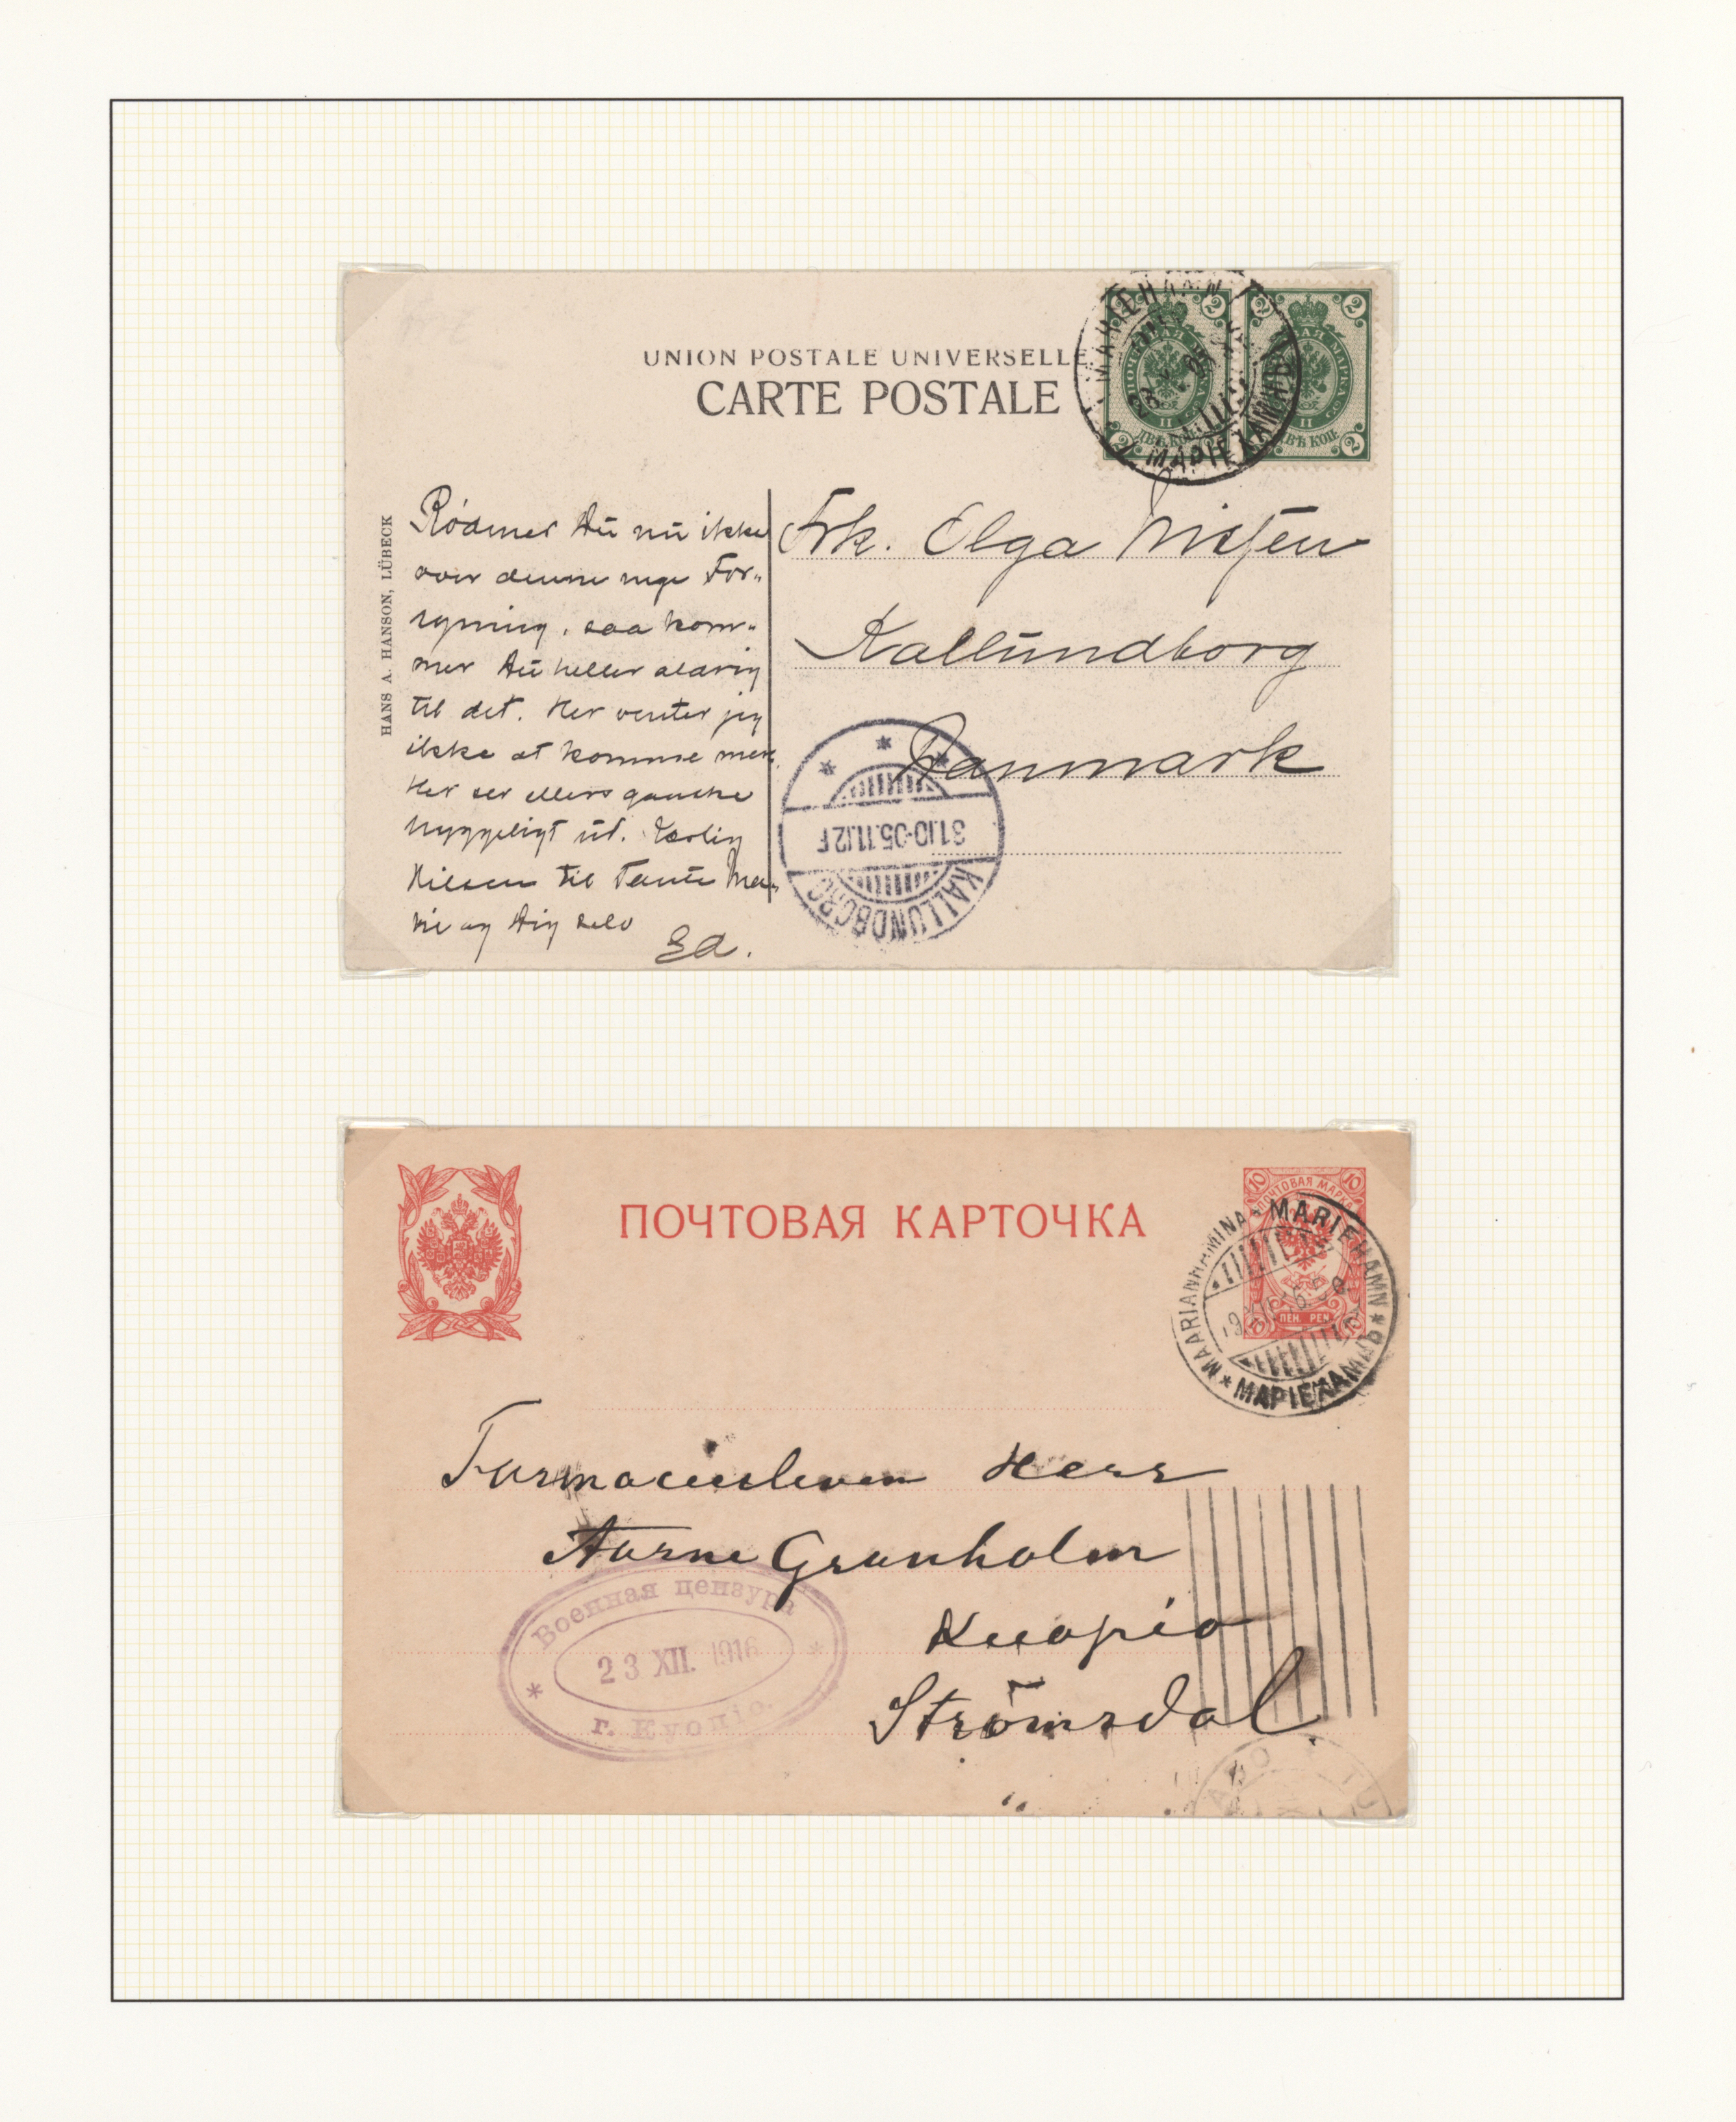 UNION POSTALE UNIVERSELLE
CARTE POSTALE
HANS A. HANSON, LÜBECK
2 2
ПОЧТОВАЯ МАРКА
ДВѢ КОП.
2 2
МАРІЕХАМНЪ
Rödmer Du nu ikke
over denne nye For-
syning, saa kom-
mer Du heller aldrig
til det. Her venter jeg
ikke at komme mere.
Her ser ellers ganske
hyggeligt ud. Kærlig
Hilsen til Tante Ma-
rie og Dig selv
Ed.
Frk. Olga Nissen
Kallundborg
Danmark
31.10-05.11.12F
KALLUNDBORG
ПОЧТОВАЯ КАРТОЧКА
10 10
ПОЧТОВАЯ МАРКА
ПЕН. PEN.
MAARIANHAMINA * MARIEHAMN * МАРІЕХАМНЪ *
Farmacieeleven Herr
Aarne Granholm
Kuopio
Strömsdal
Военная цензура
23 XII. 1916
г. Куопіо.
ÅBO TU